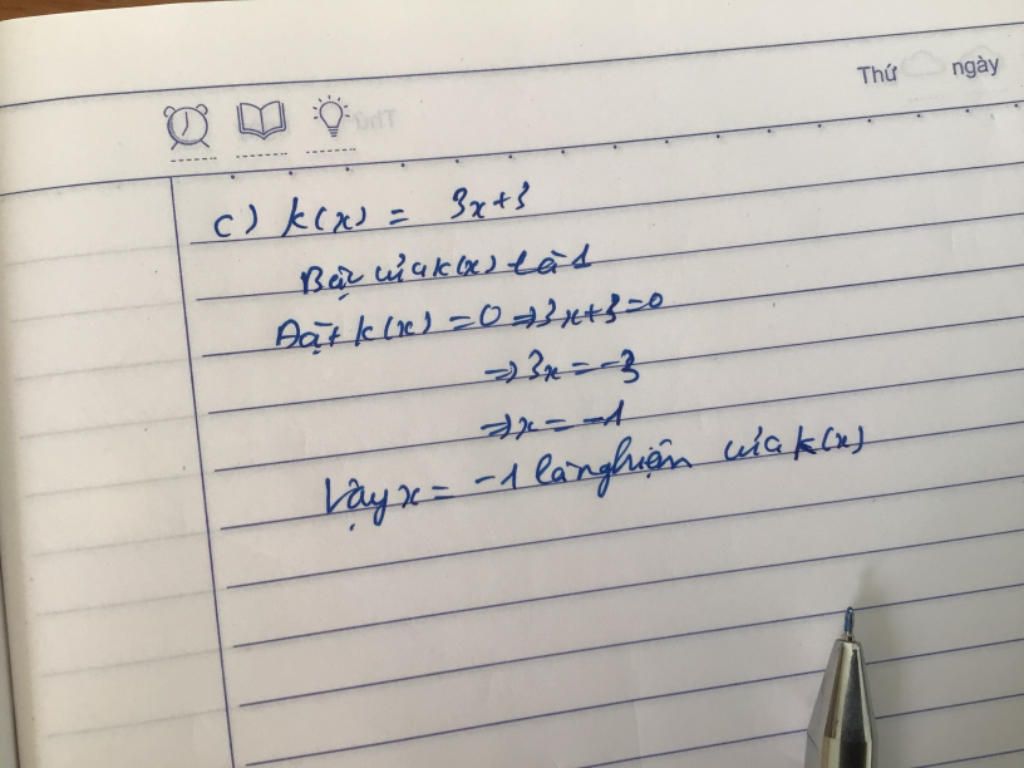 Thứ ngày
c) k(x) = 3x+3
Bậc của k(x) là 1
Đặt k(x) = 0 => 3x+3=0
=> 3x = -3
=> x = -1
Vậy x = -1 là nghiện của k(x)